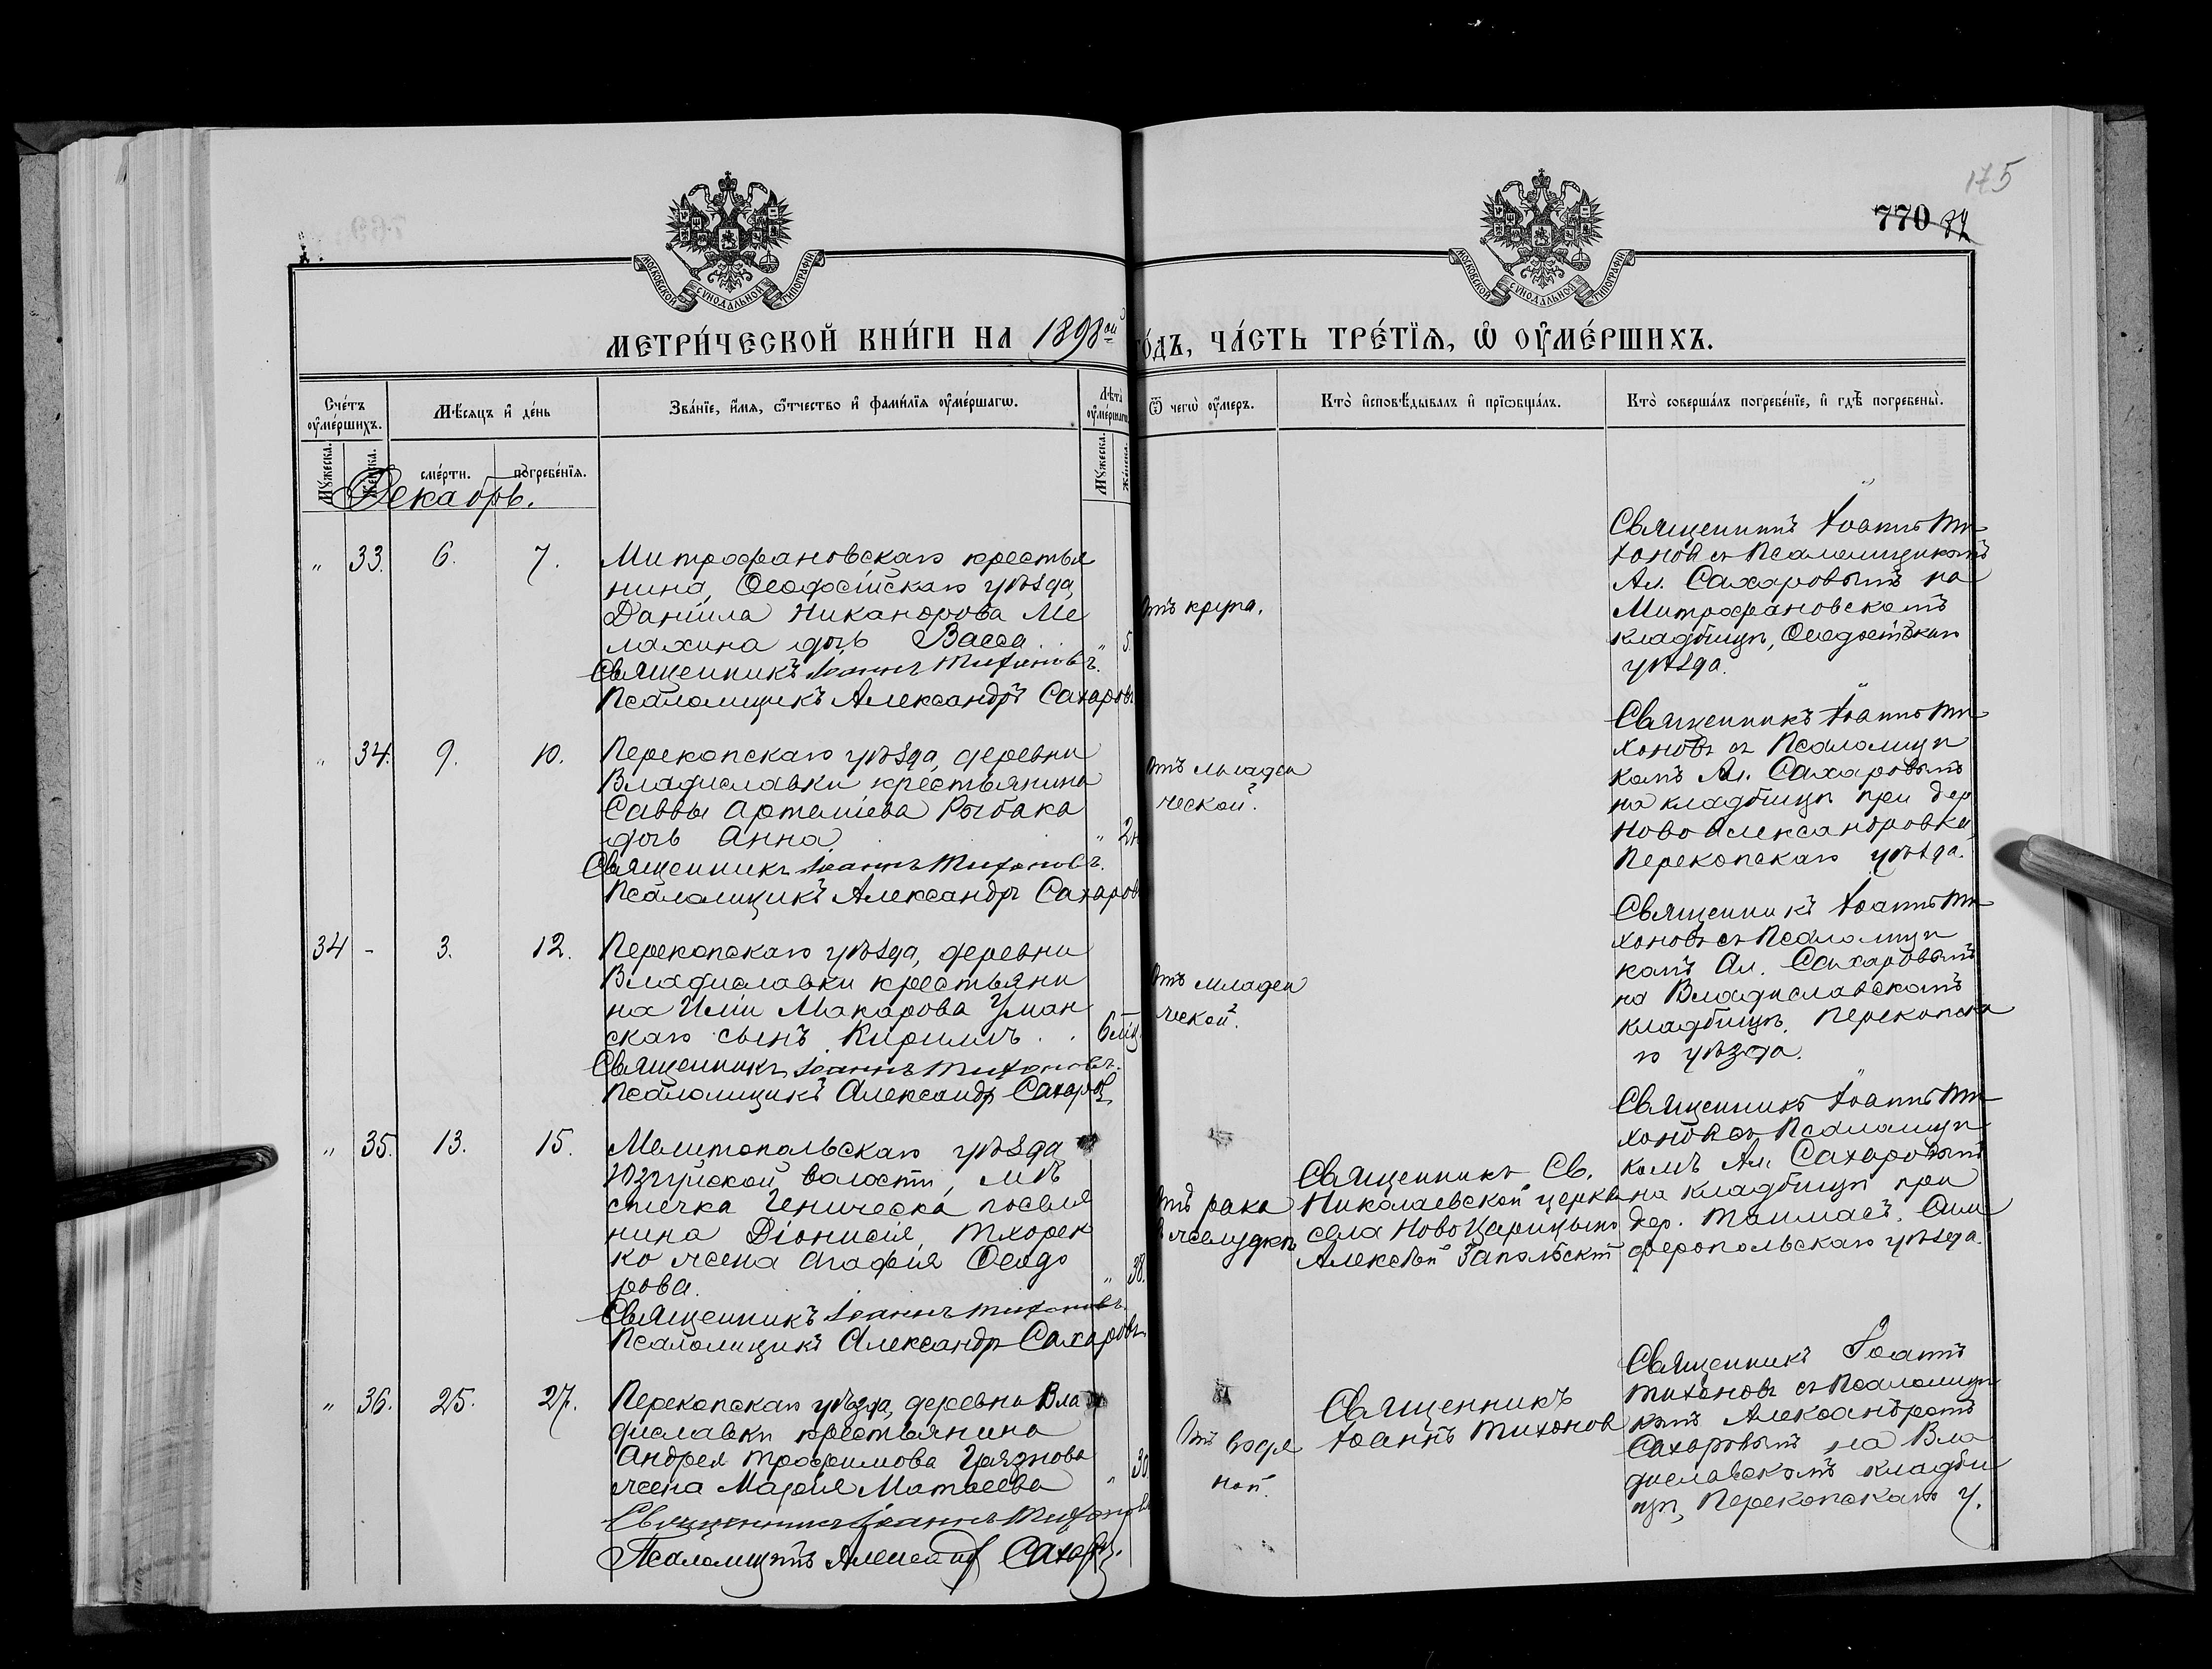 175
770
МОСКОВСКОЙ СѴНОДАЛЬНОЙ ТИПОГРАФІИ
МОСКОВСКОЙ СѴНОДАЛЬНОЙ ТИПОГРАФІИ
МЕТРИ́ЧЕСКОЙ КНИ́ГИ НА 1898ой ГО́ДЪ, ЧА́СТЬ ТРЕ́ТЇѦ, Ѿ ОУ҆МЕ́РШИХЪ.
Сче́тъ оу҆ме́ршихъ.
Мѣ́сяцъ и҆ де́нь
Зва́нїе, и҆́мя, ѻ҆́тчество и҆ фами́лїя оу҆ме́ршагѡ.
Лѣ́та оу҆ме́ршагѡ
Ѿ чегѡ̀ оу҆́меръ.
Кто̀ и҆сповѣ́дывалъ и҆ прїѡбща́лъ.
Кто̀ соверша́лъ погребе́нїе, и҆ гдѣ̀ погребены̀.
Мꙋ́жеска.
Же́нска.
сме́рти.
погребе́нїя.
Мꙋ́жеска.
Же́нска.
Декабрь.
„ 33. 6. 7.
Митрофановскаго крестья
нина, Ѳеодосійскаго уѣзда,
Даніила Никанорова Ме
лахина дочь Васса . „ 5.
Священникъ Іоаннъ Тихоновъ.
Псаломщикъ Александръ Сахаровъ
Отъ крупа.
Священникъ Іоаннъ Ти
хоновъ съ Псаломщикомъ
Ал. Сахаровымъ на
Митрофановскомъ
кладбищѣ, Ѳеодосійскаго
уѣзда.
„ 34. 9. 10.
Перекопскаго уѣзда, деревни
Владиславки крестьянина
Саввы Артеміева Рыбака
дочь Анна „ 2н
Священникъ Іоаннъ Тихоновъ.
Псаломщикъ Александръ Сахаровъ
Отъ младен
ческой.
Священникъ Іоаннъ Ти
хоновъ съ Псаломщи
комъ Ал. Сахаровымъ
на кладбищѣ при дер
Ново Александровкѣ
Перекопскаго уѣзда.
34 - 3. 12.
Перекопскаго уѣзда, деревни
Владиславки крестьяни
на Иліи Макарова Уман
скаго сынъ Кириллъ . . 6 мѣц.
Священникъ Іоаннъ Тихоновъ.
Псаломщикъ Александръ Сахаровъ
Отъ младен
ческой.
Священникъ Іоаннъ Ти
хоновъ съ Псаломщи
комъ Ал. Сахаровымъ
на Владиславскомъ
кладбищѣ, Перекопска
го уѣзда.
„ 35. 13. 15.
Мелитопольскаго уѣзда
Юзкуйской волости, мѣ
стечка Геническа поселя
нина Діонисія Тхорен
ко жена Агафія Ѳеодо
рова. „ 38.
Священникъ Іоаннъ Тихоновъ.
Псаломщикъ Александръ Сахаровъ
Отъ рака
въ желудкѣ
Священникъ Св.
Николаевской церкви
села Ново Царицыно
Алексѣй Запольскій
Священникъ Іоаннъ Ти
хоновъ съ Псаломщи
комъ Ал. Сахаровымъ
на кладбищѣ при
дер. Таимасъ, Сим
феропольскаго уѣзда.
„ 36. 25. 27.
Перекопскаго уѣзда, деревни Вла
диславки крестьянина
Андрея Трофимова Грязнова
жена Марія Матѳеева „ 30
Священникъ Іоаннъ Тихоновъ
Псаломщикъ Александръ Сахаровъ.
Отъ водя
ной.
Священникъ
Іоаннъ Тихонов
Священникъ Іоаннъ
Тихоновъ съ Псаломщи
комъ Александромъ
Сахаровымъ на Вла
диславскомъ кладби
щѣ, Перекопскаго у.